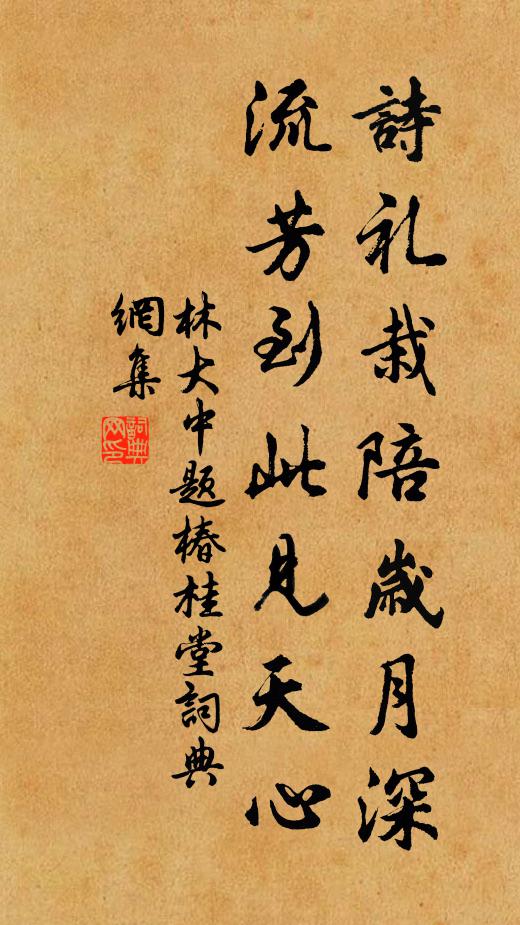 詩礼栽陪歲月深
流芳到此見天心
林大中題椿桂堂詞典
網集
詞典
网印